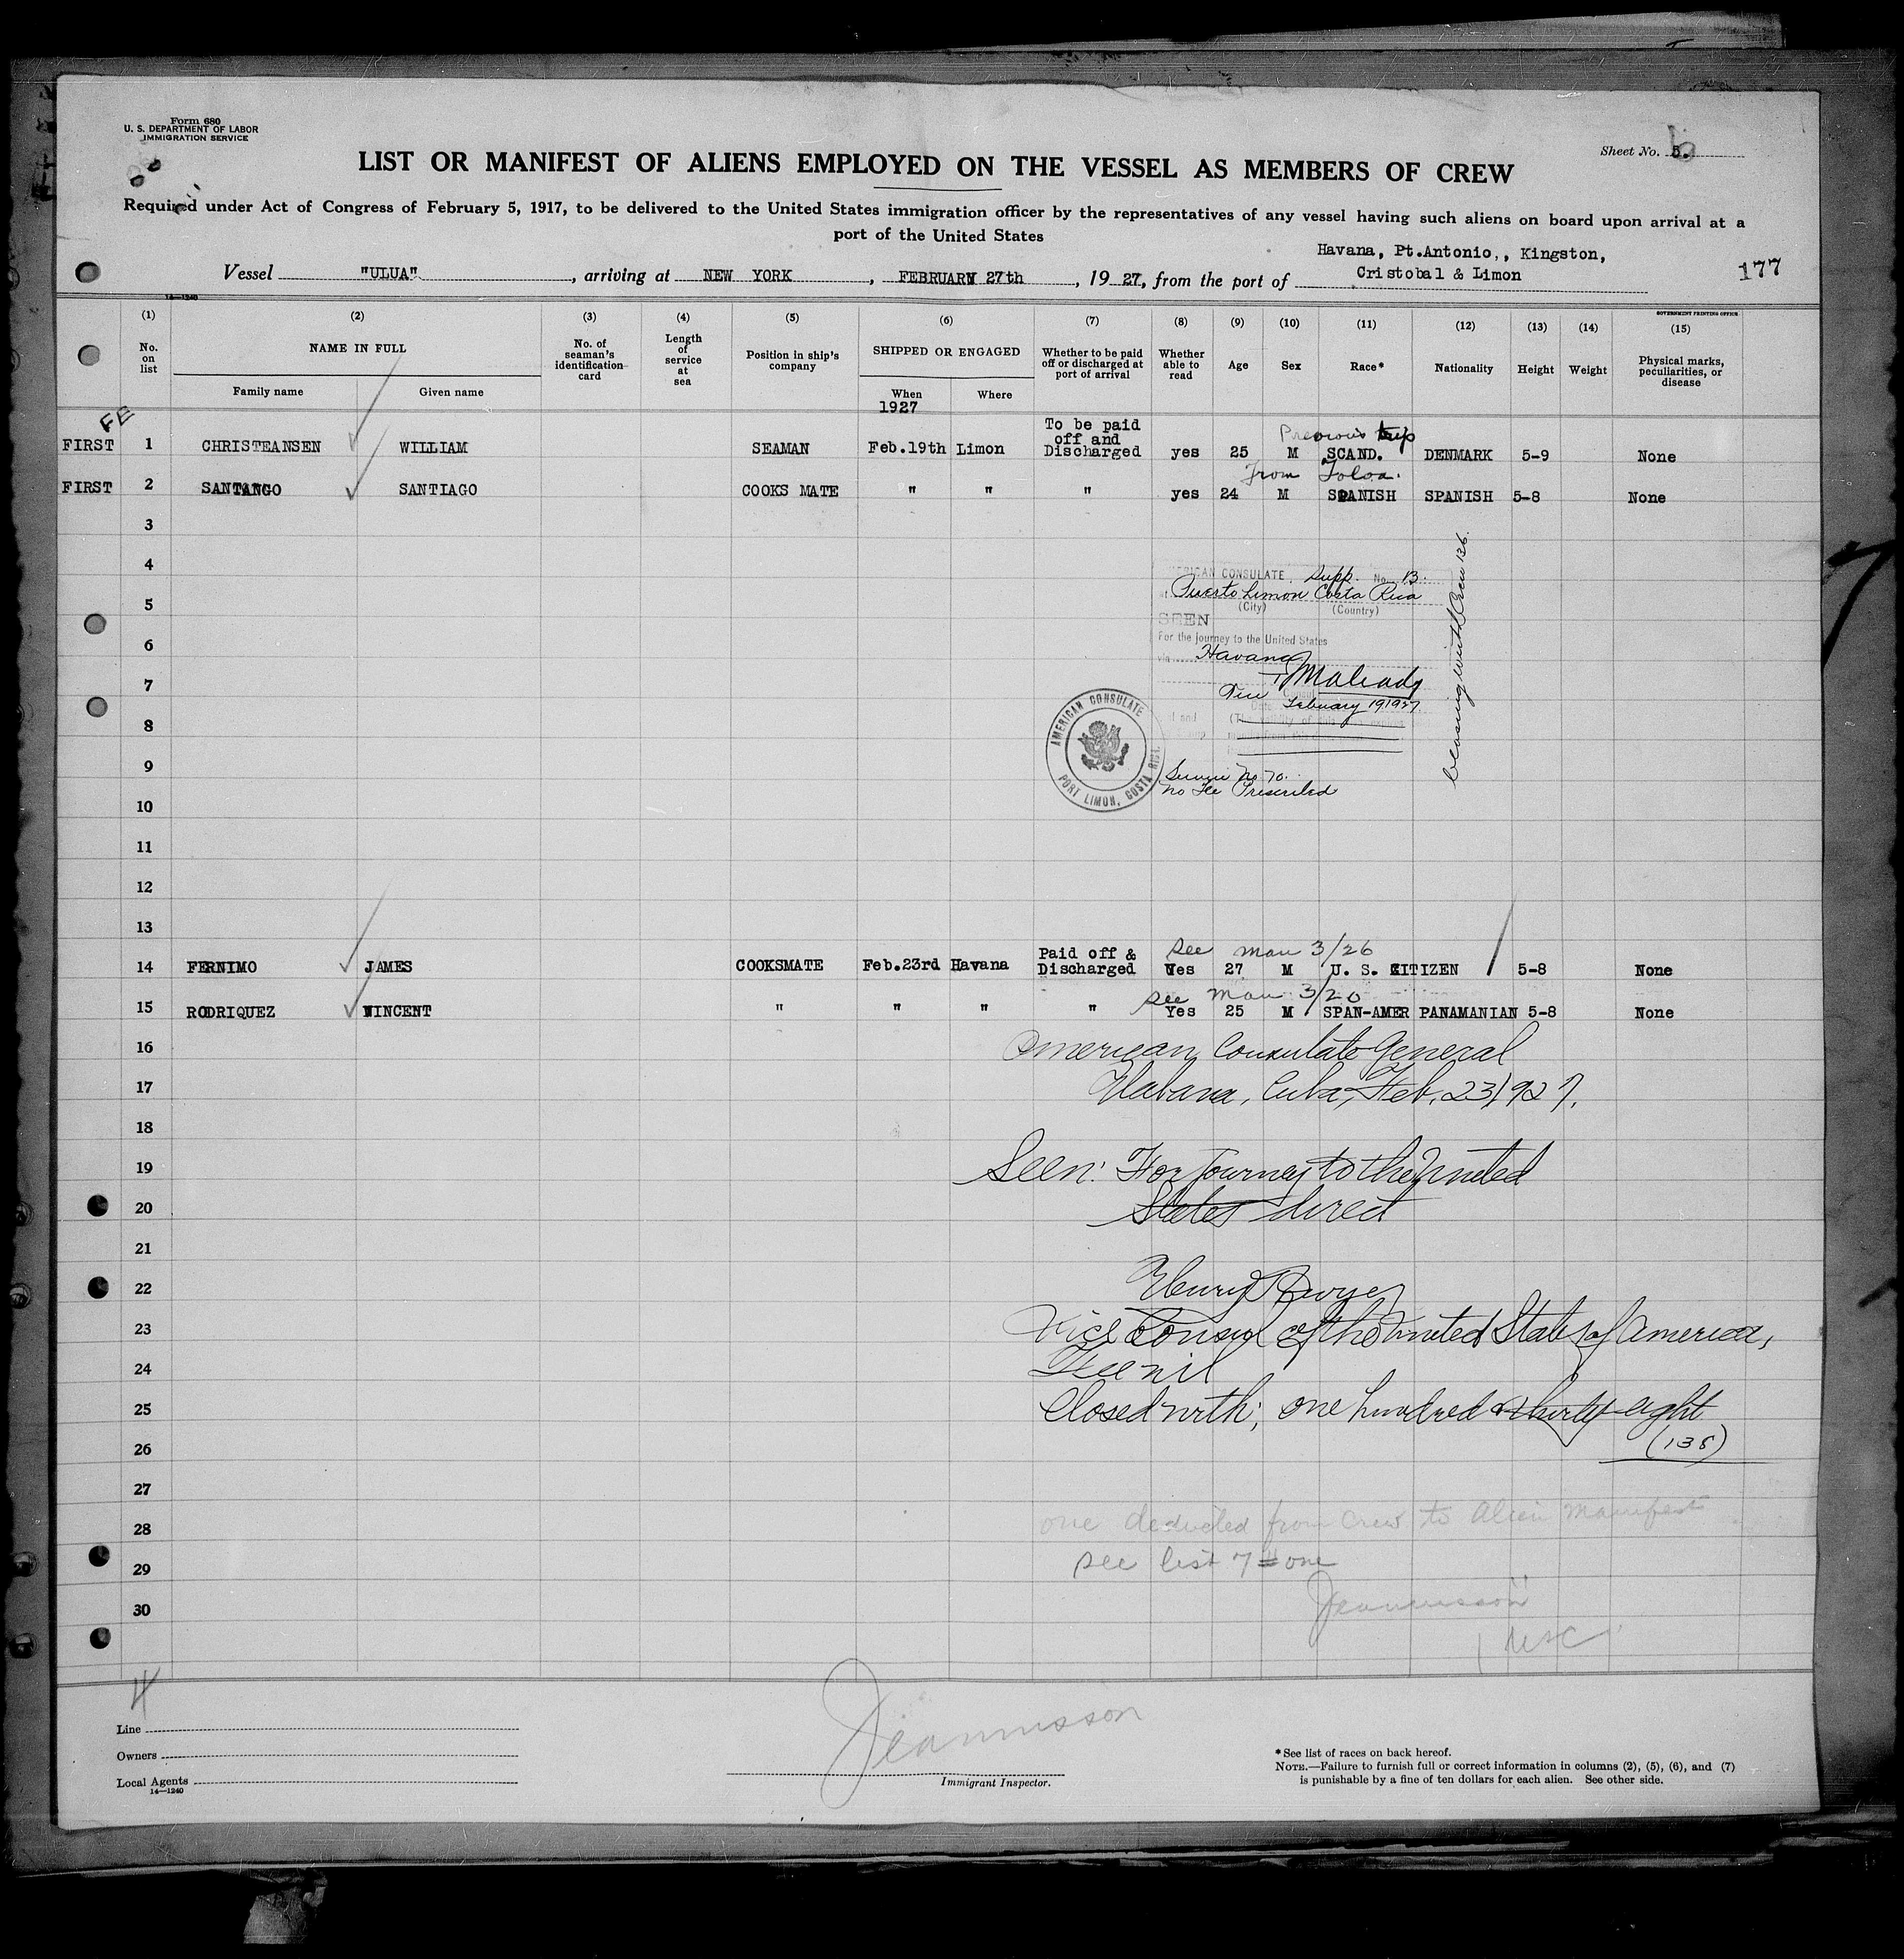 Form 680
U. S. DEPARTMENT OF LABOR
IMMIGRATION SERVICE
Sheet No. 5.
LIST OR MANIFEST OF ALIENS EMPLOYED ON THE VESSEL AS MEMBERS OF CREW
Required under Act of Congress of February 5, 1917, to be delivered to the United States immigration officer by the representatives of any vessel having such aliens on board upon arrival at a
port of the United States
Havana, Pt.Antonio,, Kingston,
Vessel "ULUA", arriving at NEW YORK, FEBRUARY 27th, 19 27, from the port of Cristobal & Limon
177
14—1240
GOVERNMENT PRINTING OFFICE
(1) (2) (3) (4) (5) (6) (7) (8) (9) (10) (11) (12) (13) (14) (15)
No. on list NAME IN FULL Family name Given name No. of seaman's identification card Length of service at sea Position in ship's company SHIPPED OR ENGAGED When Where Whether to be paid off or discharged at port of arrival Whether able to read Age Sex Race* Nationality Height Weight Physical marks, peculiarities, or disease
1927
FE
To be paid off and Discharged
Previous trip
FIRST 1 CHRISTEANSEN WILLIAM SEAMAN Feb.19th Limon yes 25 M SCAND. DENMARK 5-9 None
from Toloa.
FIRST 2 SANTANGO SANTIAGO COOKS MATE " " " yes 24 M SPANISH SPANISH 5-8 None
3
4
AMERICAN CONSULATE Supp. No. 13.
5
at Puerto Limon Costa Rica
(City) (Country)
SEEN
6
For the journey to the United States
via Havana
7
February 19 1927
8
AMERICAN CONSULATE
PORT LIMON, COSTA RICA
9
Service No 70.
No Fee Prescribed
10
11
12
13
see man 3/26
14 FERNIMO JAMES COOKSMATE Feb.23rd Havana Paid off & Discharged Yes 27 M U. S. CITIZEN 5-8 None
see man 3/20
15 RODRIQUEZ VINCENT " " " " Yes 25 M SPAN-AMER PANAMANIAN 5-8 None
16 American Consulate General
17 Habana, Cuba, Feb. 23 1927.
18
19 Seen: For Journey to the United
20 States direct
21
22 Henry Dwyer
23 Vice Consul of the United States of America,
24 Fee nil
25 Closed with; one hundred thirty eight
26 (138)
27
28 one deducted from crew to Alien Manifest
29 see list 7 = one
30 Jeannisson
4
Line
Owners
Local Agents
14—1240
Jeannisson
Immigrant Inspector.
*See list of races on back hereof.
NOTE.—Failure to furnish full or correct information in columns (2), (5), (6), and (7)
is punishable by a fine of ten dollars for each alien. See other side.